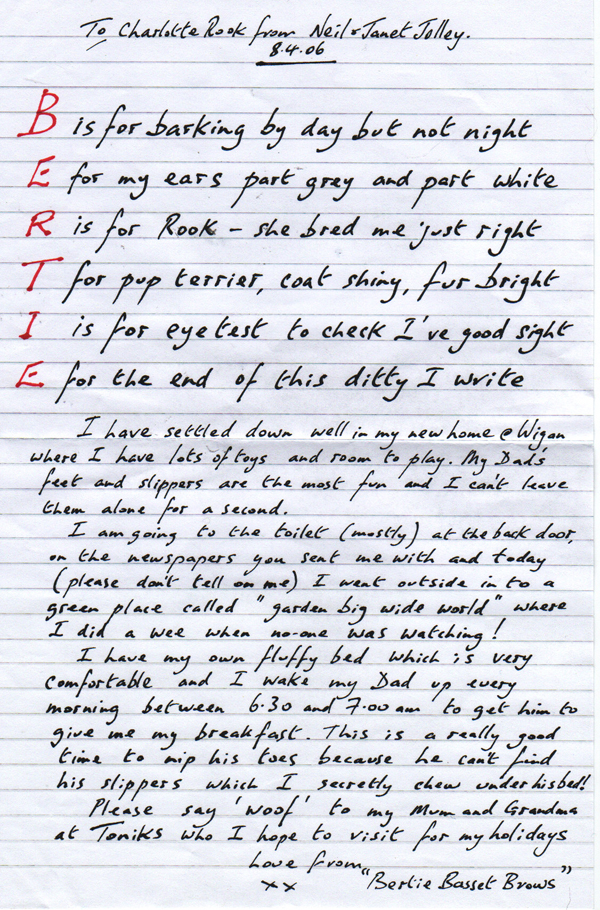 To Charlotte Rook from Neil & Janet Jolley.
8.4.06
B is for barking by day but not night
E for my ears part grey and part white
R is for Rook - she bred me just right
T for pup terrier, coat shiny, fur bright
I is for eyetest to check I've good sight
E for the end of this ditty I write
I have settled down well in my new home @ Wigan
where I have lots of toys and room to play. My Dad's
feet and slippers are the most fun and I can't leave
them alone for a second.
I am going to the toilet (mostly) at the back door,
on the newspapers you sent me with and today
(please don't tell on me) I went outside in to a
green place called "garden big wide world" where
I did a wee when no-one was watching!
I have my own fluffy bed which is very
comfortable and I wake my Dad up every
morning between 6.30 and 7.00 am to get him to
give me my breakfast. This is a really good
time to nip his toes because he can't find
his slippers which I secretly chew under his bed!
Please say 'woof' to my Mum and Grandma
at Toniks who I hope to visit for my holidays
Love from
xx "Bertie Basset Brows"